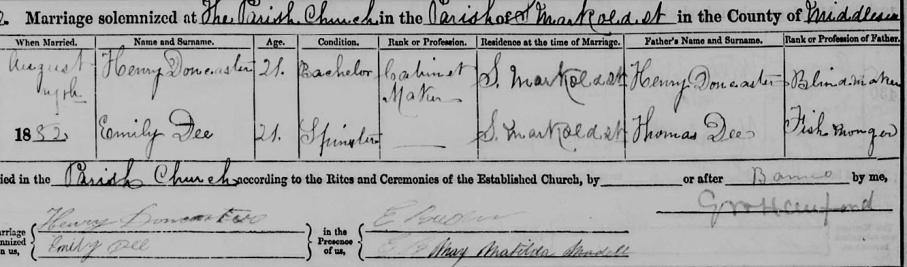 Marriage solemnized at The Parish Church in the Parish of St Mark Old St in the County of Middlesex
When Married. Name and Surname. Age. Condition. Rank or Profession. Residence at the time of Marriage. Father's Name and Surname. Rank or Profession of Father.
August Henry Doncaster 21. Bachelor Cabinet Maker S. Mark Old St Henry Doncaster Blind maker
1882 Emily Dee 21. Spinster — S. Mark Old St Thomas Dee Fish monger
ied in the Parish Church according to the Rites and Ceremonies of the Established Church, by or after Banns by me,
arriage Henry Doncaster in the E
mnized Emily Dee Presence
n us, of us, May Matilda